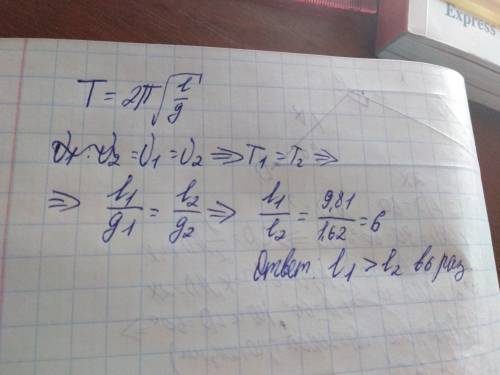 Express
T = 2π√(l/g)
ν₁ = ν₂ ⇒ T₁ = T₂ ⇒
⇒ l₁/g₁ = l₂/g₂ ⇒ l₁/l₂ = 9,81/1,62 = 6
Ответ: l₁ > l₂ в 6 раз